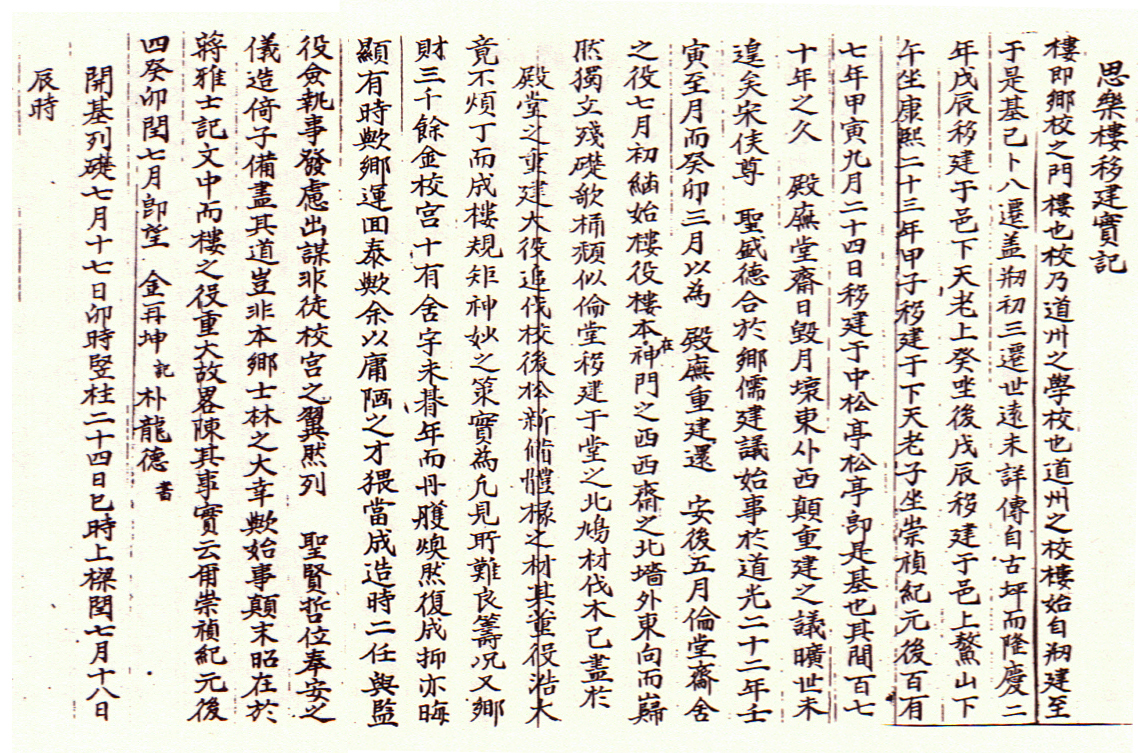 思樂樓移建實記
樓即鄉校之門樓也校乃道州之學校也道州之校樓始自刱建至
于是基已卜八遷盖刱初三遷世遠未詳傳自古坪而隆慶二
年戊辰移建于邑下天老上癸坐後戊辰移建于邑上鰲山下
午坐康熙二十三年甲子移建于下天老子坐崇禎紀元後百有
七年甲寅九月二十四日移建于中松亭松亭卽是基也其間百七
十年之久 殿廡堂齋日毀月壞東仆西顛重建之議曠世未
遑矣宋侯尊 聖盛德合於鄉儒建議始事於道光二十二年壬
寅至月而癸卯三月以為 殿廡重建還 安後五月倫堂齋舍
之役七月初緬始樓役樓本在神門之西西齋之北墻外東向而巋
然獨立殘礎欹桷頹似倫堂移建于堂之北鳩材伐木已盡於
殿堂之重建大役追伐校後松新備體椽之材其董役浩大
竟不煩丁而成樓規矩神妙之策實為凢見所難良籌况又鄉
財三千餘金校宮十有舍宇未朞年而丹雘煥然復成抑亦晦
顯有時歟鄉運回泰歟余以庸陋之才猥當成造時二任與監
役僉執事發慮出謀非徒校宮之翼然列 聖賢哲位奉安之
儀造倚子備盡其道豈非本鄉士林之大幸歟始事顛末昭在於
蔣雅士記文中而樓之役重大故畧陳其事實云爾崇禎紀元後
四癸卯閏七月卽望 金再坤記 朴龍德書
開基列礎七月十七日卯時竪柱二十四日巳時上樑閏七月十八日
辰時